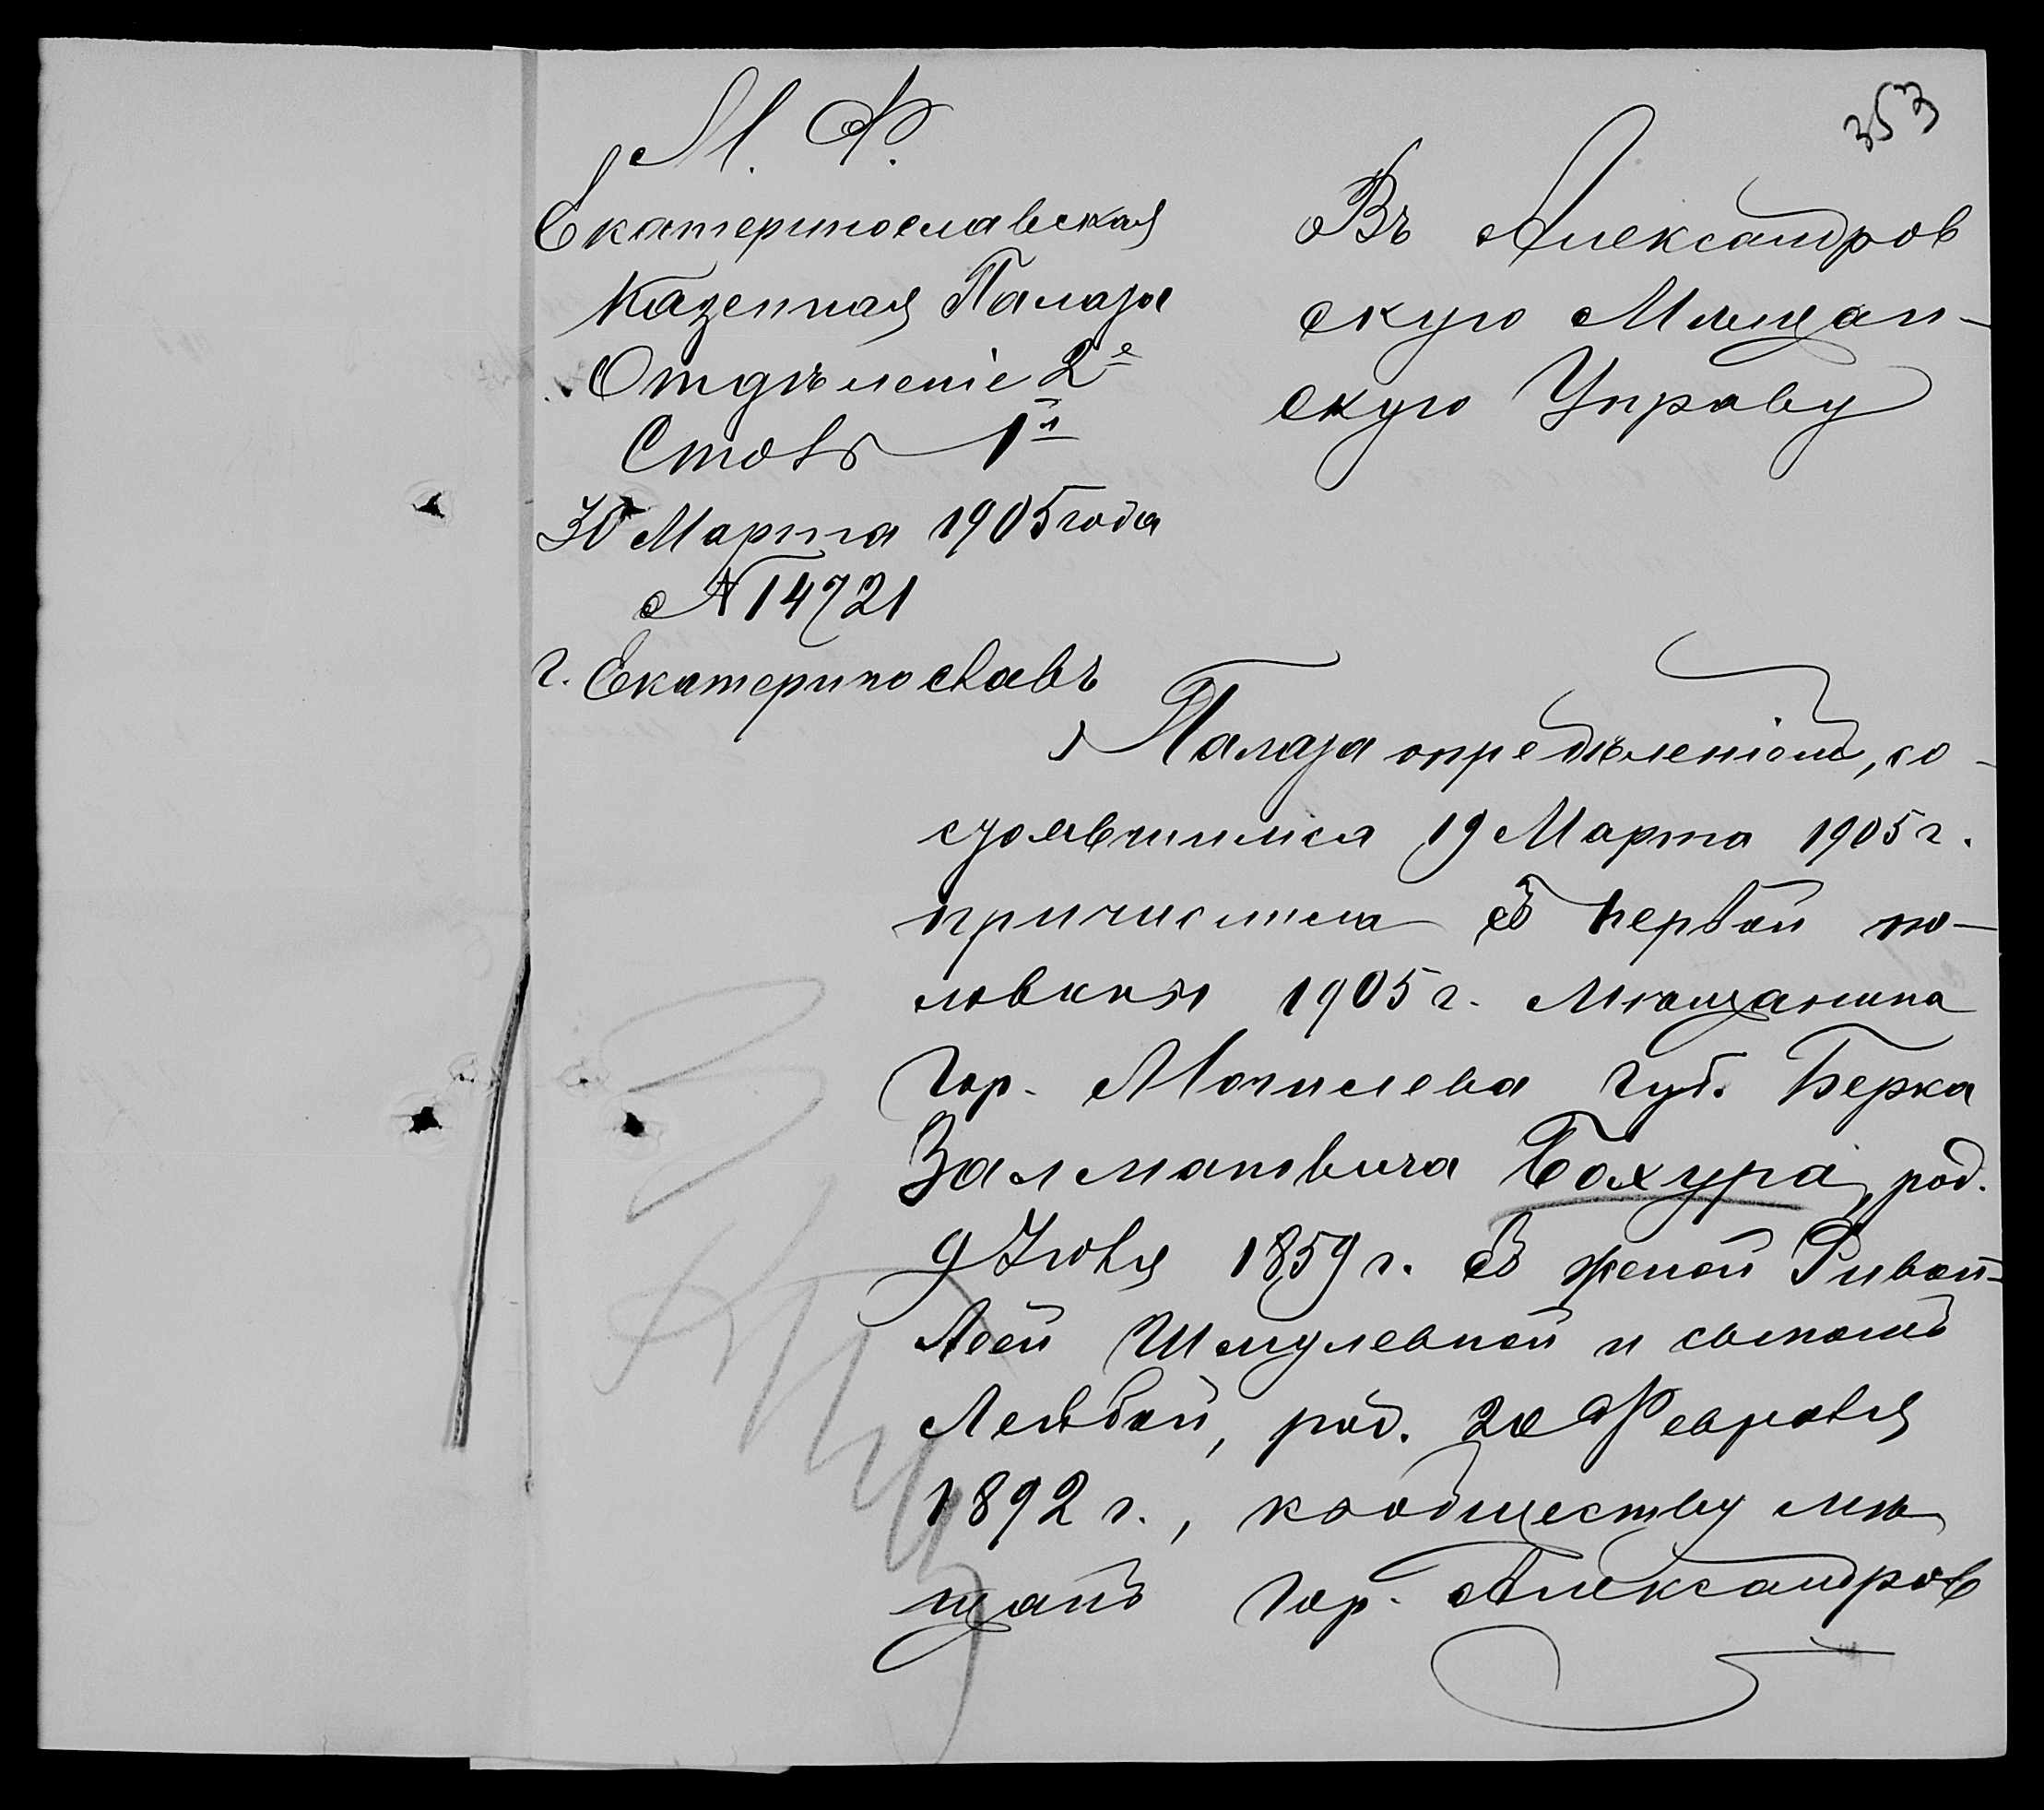 353
М. Ф.
Екатеринославская
Казенная Палата
Отдѣленіе 2е
Столъ 1й
30 Марта 1905 года
№ 14721
г. Екатеринославъ
Въ Александров
скую Мѣщан-
скую Управу
Палата опредѣленіемъ, со-
стоявшимся 19 Марта 1905 г.
причислила съ первой по-
ловины 1905 г. Мѣщанина
гор. Могилева губ. Берка
Залмановича Бахура, род.
9 Іюля 1859 г. съ женой Ривой-
Леей Шмулевной и сыномъ
Лейбой, род. 20 Февраля
1892 г., къ обществу мѣ
щанъ гор. Александров